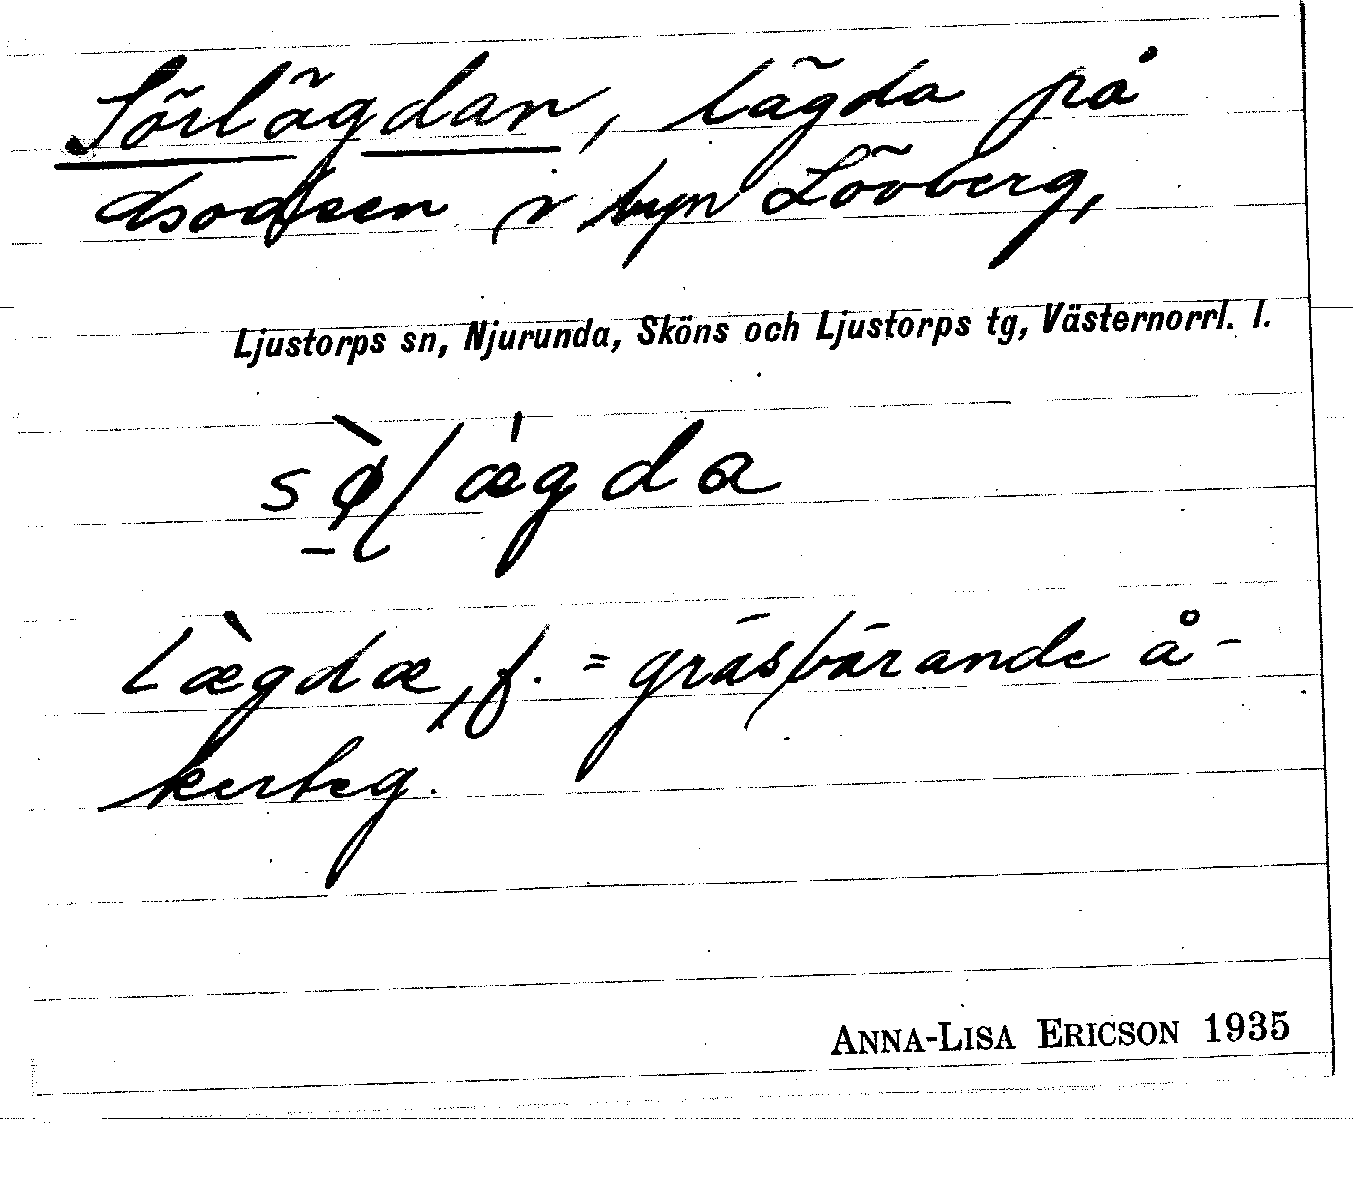 Sörlägdan, lägda på
i byn Lövberg,
Ljustorps sn, Njurunda, Sköns och Ljustorps tg, Västernorrl. l.
lægdæ, f. = gräsbärande å-
kerteg.
ANNA-LISA ERICSON 1935